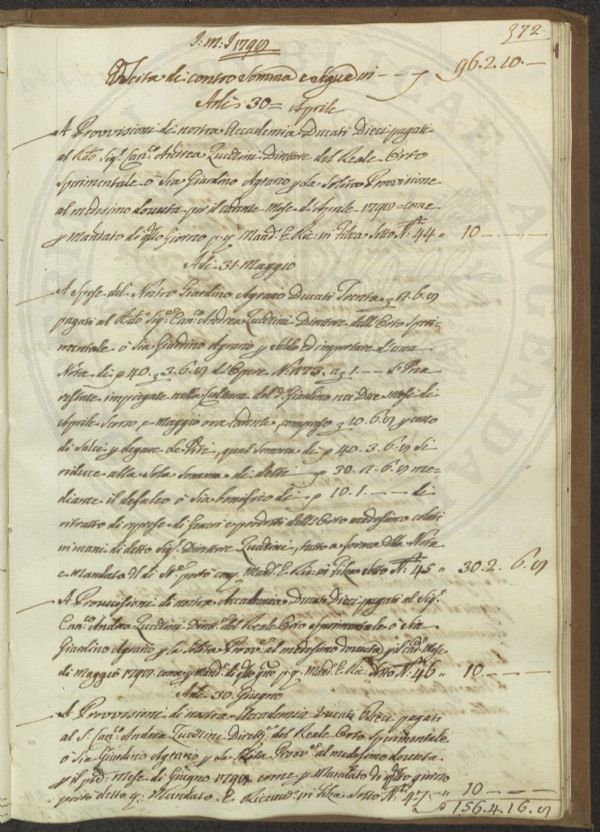 372
J: M: J 1790
Uscita di contro Somma e Segue in 96.2.10.—
Adi 30 = Aprile
A Provvisioni di nostra Accademia Ducati Dieci pagati
al Sig. Can.co Andrea Zucchini Direttore del Reale Orto
Sperimentale o Sia Giardino Agrario p la Solita Provvisione
al medesimo dovuta per il cadente Mese d'Aprile 1790 = come
p Mandato di q.to Giorno p. g. Mand. E. Ric. in Filza Sotto N.° 44 " 10 —
Adi 31 Maggio
A Spese del Nostro Giardino Agrario Ducati Trenta
pagati al Sig. Can.co Andrea Zucchini Direttore dell'Orto Speri-
mentale o Sia Giardino Agrario p Saldo ed importare d'una
Nota di p 40. 3. 6. di Opere N.° 173. a 1. —
restate impiegate nella Cultura del d.o Giardino nei Due mesi di
Aprile Scorso, e Maggio ora cadente, compreso 10. 6. p costo
di Salci p legare le Viti, qual Somma di p 40. 3. 6. Si
riduce alla Sola Somma di detti p 30. 6. me-
diante il defalco o Sia bonifico di p 10. 1. — di
ritratto di riprese di Generi dell'Orto medesimo colati
in mani di detto Sig. Direttore Zucchini, tutto a forma della Nota
e Mandato Mand. E. Ric. in Filza Sotto N.° 45 " 30.2. 6.
A Provvisioni di nostra Accademia Ducati Dieci pagati al Sig.
Can.co Andrea Zucchini Dirett. del Reale Orto Sperimentale o Sia
Giardino Agrario p la Solita Provv. al medesimo dovuta p il cad. Mese
di Maggio 1790. come p Mand. di q.to g.no p. g. Mand. E. Ric. Sotto N.° 46 " 10 —
Adi 30 Giugno
A Provvisioni di nostra Accademia Ducati Dieci pagati
al S. Can.co Andrea Zucchini Dirett.e del Reale Orto Sperimentale
o Sia Giardino Agrario p la Solita Provv. al medesimo dovuta
p il pred. Mese di Giugno 1790. come p Mandato di q.to giorno
Mandato E. Ricevuta in Filza Sotto N.° 47 " 10 —
p 156.4.16.